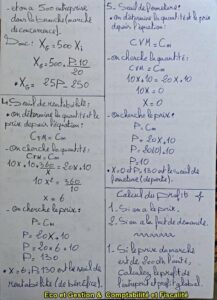 - et on a 500 entreprises
dans la branche (marché
de concurrence).
Donc: X₀ = 500 Xi
X₀ = 500 · P-10/20
X₀ = 25P - 250
4. Seuil de rentabilité:
on détermine la quantité et le
prix depuis l'équation:
CTM = Cm
- on cherche la quantité:
CTM = Cm
10x + 10 + 360/x = 20x + 10
10x² = 360/10
x = 6
- on cherche le prix:
P = Cm
P = 20x + 10
P = 20x6 + 10
P = 130
x = 6, P = 130 est le seuil de
rentabilité
5. Seuil de fermeture:
on détermine la quantité et le prix
depuis l'équation:
CVM = Cm
- on cherche la quantité:
CVM = Cm
10x + 10 = 20x + 10
10x = 0
x = 0
- on cherche le prix:
P = Cm
P = 20x + 10
P = 20(0) + 10
P = 10
fermeture (départ).
Calcul du Profit
1. Si on a le prix.
2. Si on a la fct de demande.
1. Si le prix du marché
est de 200 dh l'unité,
Calculez le profit de
l'entrepri et profit global.
Eco et Gestion & Comptabilité et Fiscalité